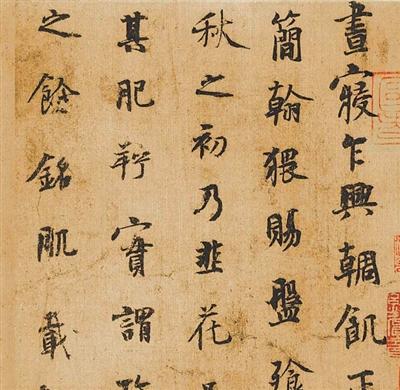 晝寢乍興輖飢正
簡翰猥賜盤飧
秋之初乃韭花
其肥羜實謂
之餘銘肌載